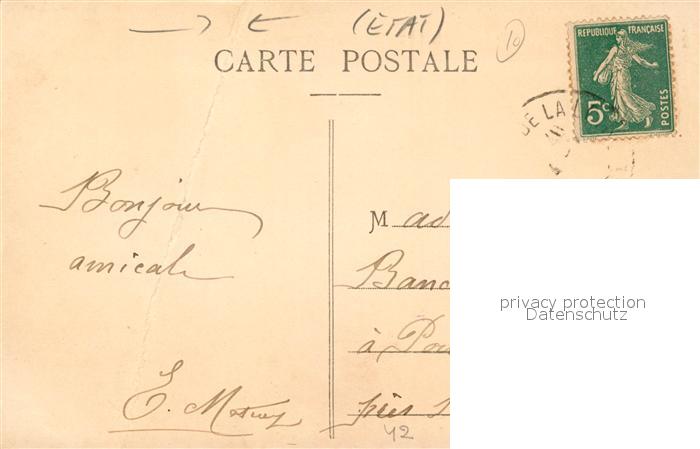 (ÉTAT)
10
CARTE POSTALE
RÉPUBLIQUE FRANÇAISE
5c
POSTES
DE LA
Bonjour
amicale
Mad
Banc
à Pou
près
E.
42
privacy protection
Datenschutz